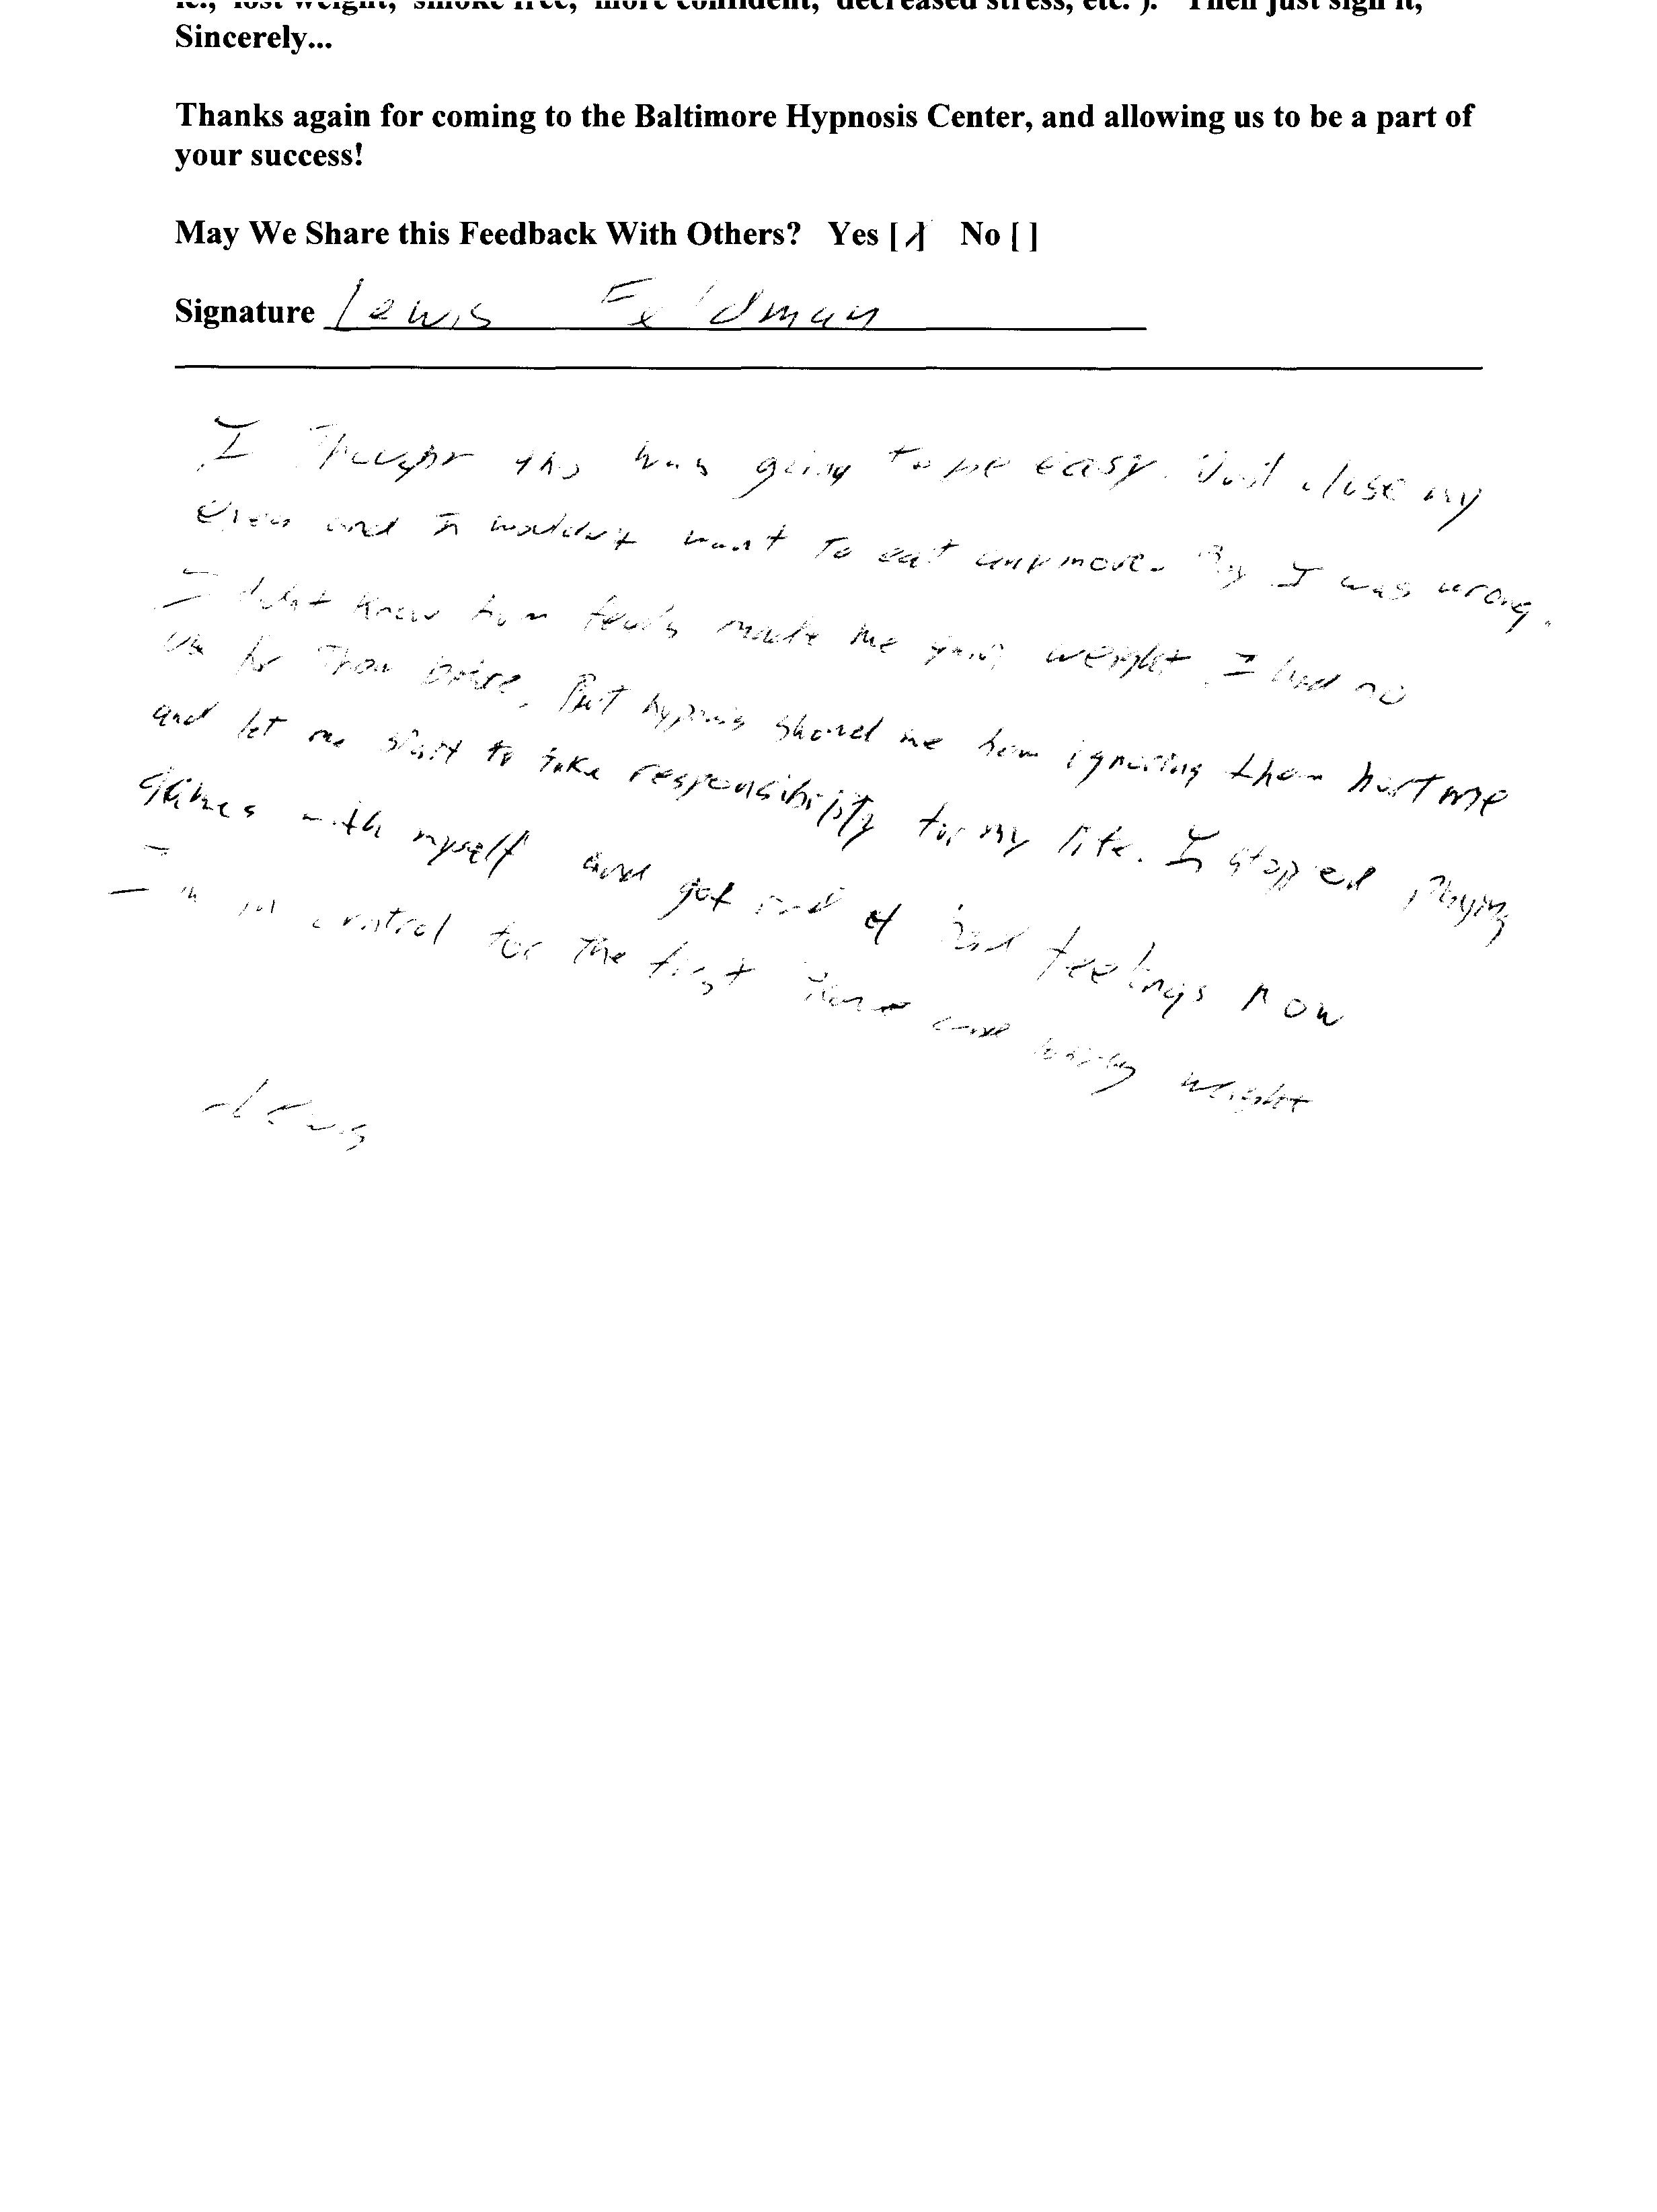 ie., lost weight, smoke free, more confident, decreased stress, etc. ). Then just sign it,
Sincerely...
Thanks again for coming to the Baltimore Hypnosis Center, and allowing us to be a part of
your success!
May We Share this Feedback With Others? Yes [/] No [ ]
Signature Lewis Feldman
I Thought this was going to be easy. Just close my
eyes and I wouldn't want to eat anymore. Boy I was wrong.
I didn't know how made me gain weight. I had no
use for Them before. But hypnosis showed me how ignoring them hurt me
and let me start to take responsibility for my life. I stopped Playing
games with myself and got rid of bad feelings now
I'm in control for the first time and losing weight
-Lewis